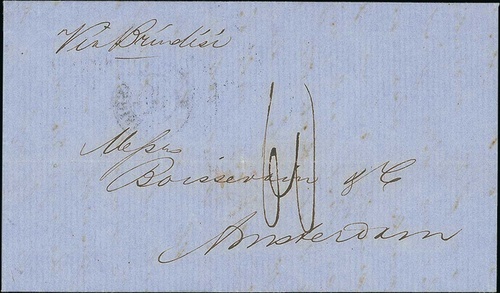 Via Brindisi
Messrs
Boissevain & C
Amsterdam